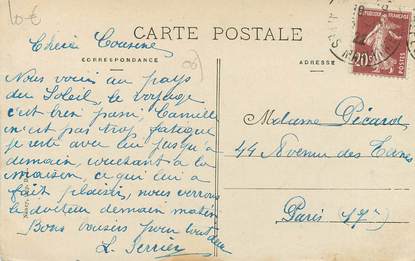 10€
CARTE POSTALE
CORRESPONDANCE
ADRESSE
(06)
Chère Cousine
Nous voici au pays
du Soleil, le voyage
c'est bien passé, Camille
n'est pas trop fatigué
je reste avec lui jusqu'à
demain, couchant à la
maison, ce qui lui a
fait plaisir, nous verrons
le docteur demain matin
Bons baisers pour tout deux
L. Terrier
Madame Picard
44 Avenue des Ternes
Paris (17e)
POSTES